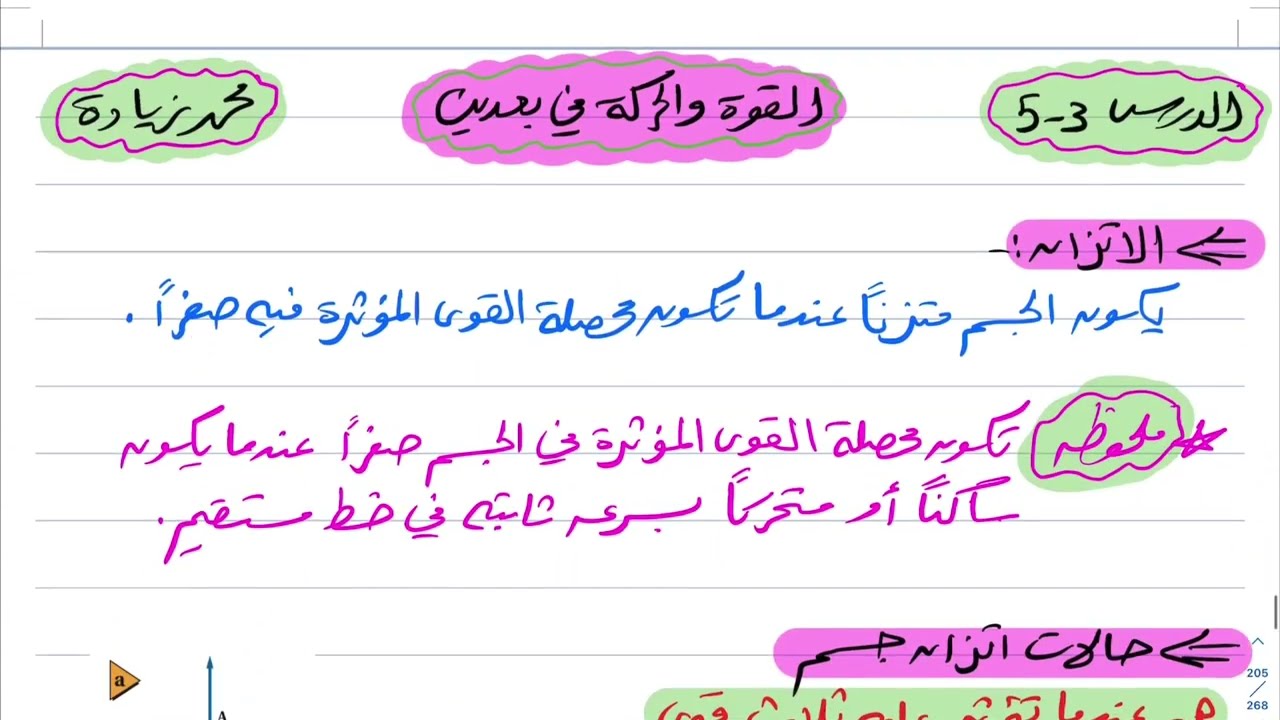 الدرس 3-5
القوة والحركة في بعدين
محمد زيادة
الاتزان :-
يكون الجسم متزنًا عندما تكون محصلة القوى المؤثرة فيه صفرًا .
ملحوظه تكون محصلة القوى المؤثرة في الجسم صفرًا عندما يكون
ساكنًا أو متحركًا بسرعه ثابته في خط مستقيم .
حالات اتزان جسم
عندما تؤثر عليه ثلاث قوى
a
A
205
268